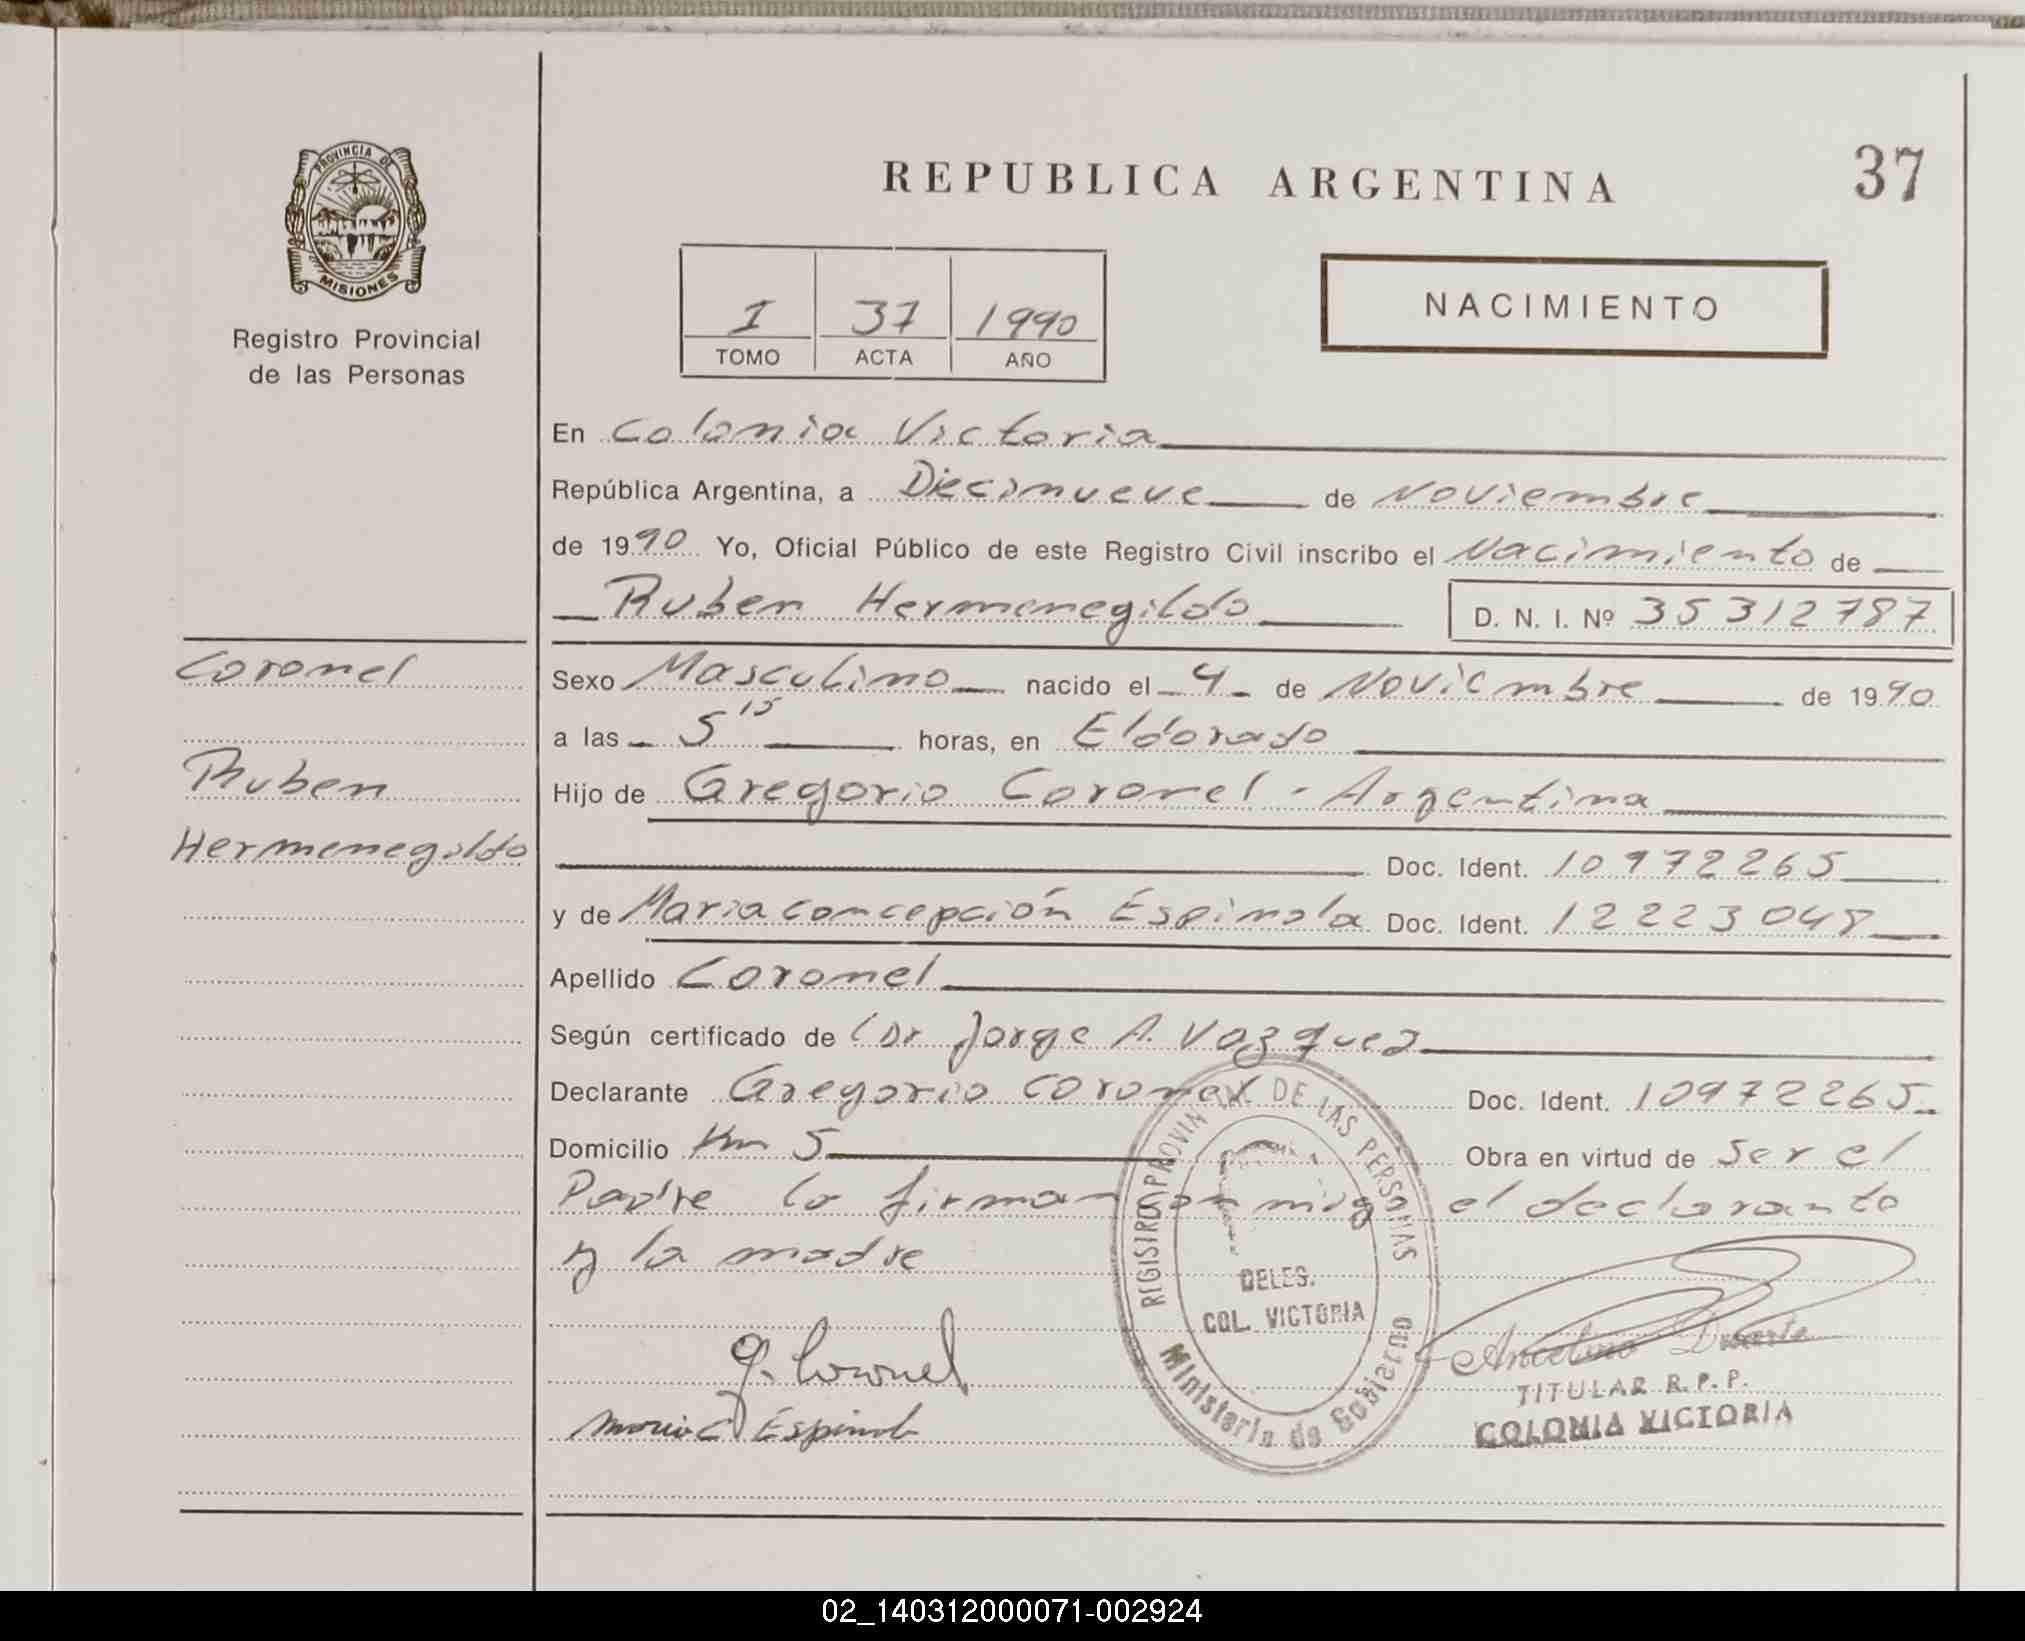 PROVINCIA DE
MISIONES
Registro Provincial
de las Personas
REPUBLICA ARGENTINA
37
I 37 1990
TOMO ACTA AÑO
NACIMIENTO
En Colonia Victoria
República Argentina, a Diecinueve de Noviembre
de 1990 Yo, Oficial Público de este Registro Civil inscribo el Nacimiento de
Ruben Hermenegildo D. N. I. Nº 35312787
Coronel
Ruben
Hermenegildo
Sexo Masculino nacido el 4 de Noviembre de 1990
a las 5 15 horas, en Eldorado
Hijo de Gregorio Coronel - Argentina
Doc. Ident. 10972265
y de Maria concepción Espinola Doc. Ident. 12223048
Apellido Coronel
Según certificado de Dr Jorge A. Vazquez
Declarante Gregorio Coronel Doc. Ident. 10972265
Domicilio Km 5 Obra en virtud de Ser el
Padre lo firman conmigo el declarante
y la madre
REGISTRO PROVINCIAL DE LAS PERSONAS
DELEG.
COL. VICTORIA
Ministerio de Gobierno
G. Coronel
Maria C Espinola
Duarte
TITULAR R.P.P.
COLONIA VICTORIA
02_140312000071-002924